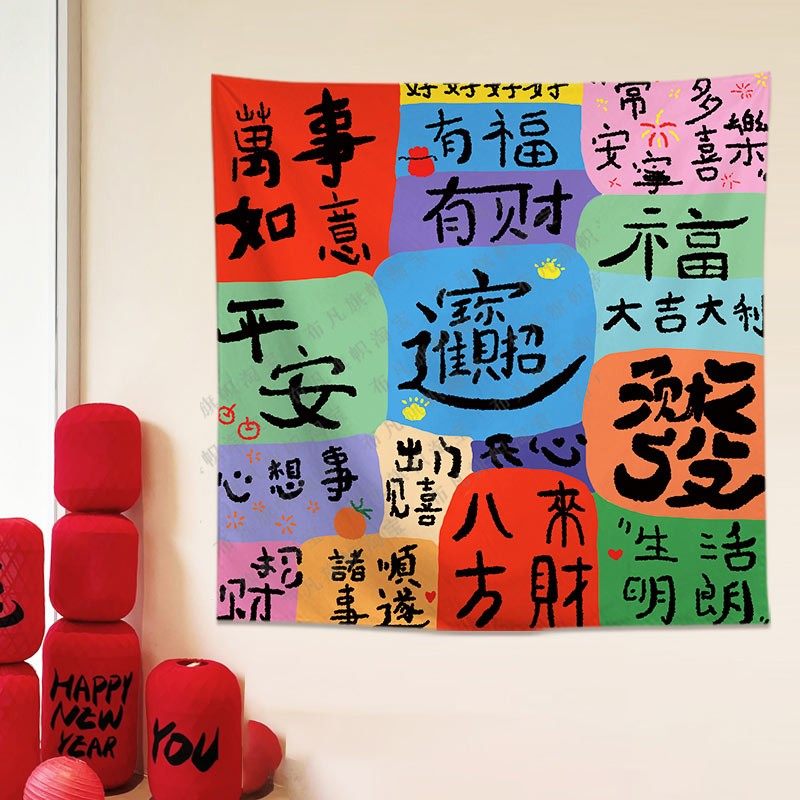 萬事
如意
好好好好
有福
有财
常安寧
多喜樂
福
大吉大利
平安
心想事
出门
见喜
开心
八來
方財
招
财
諸事
順遂
生活
明朗
HAPPY
NEW
YEAR
YOU